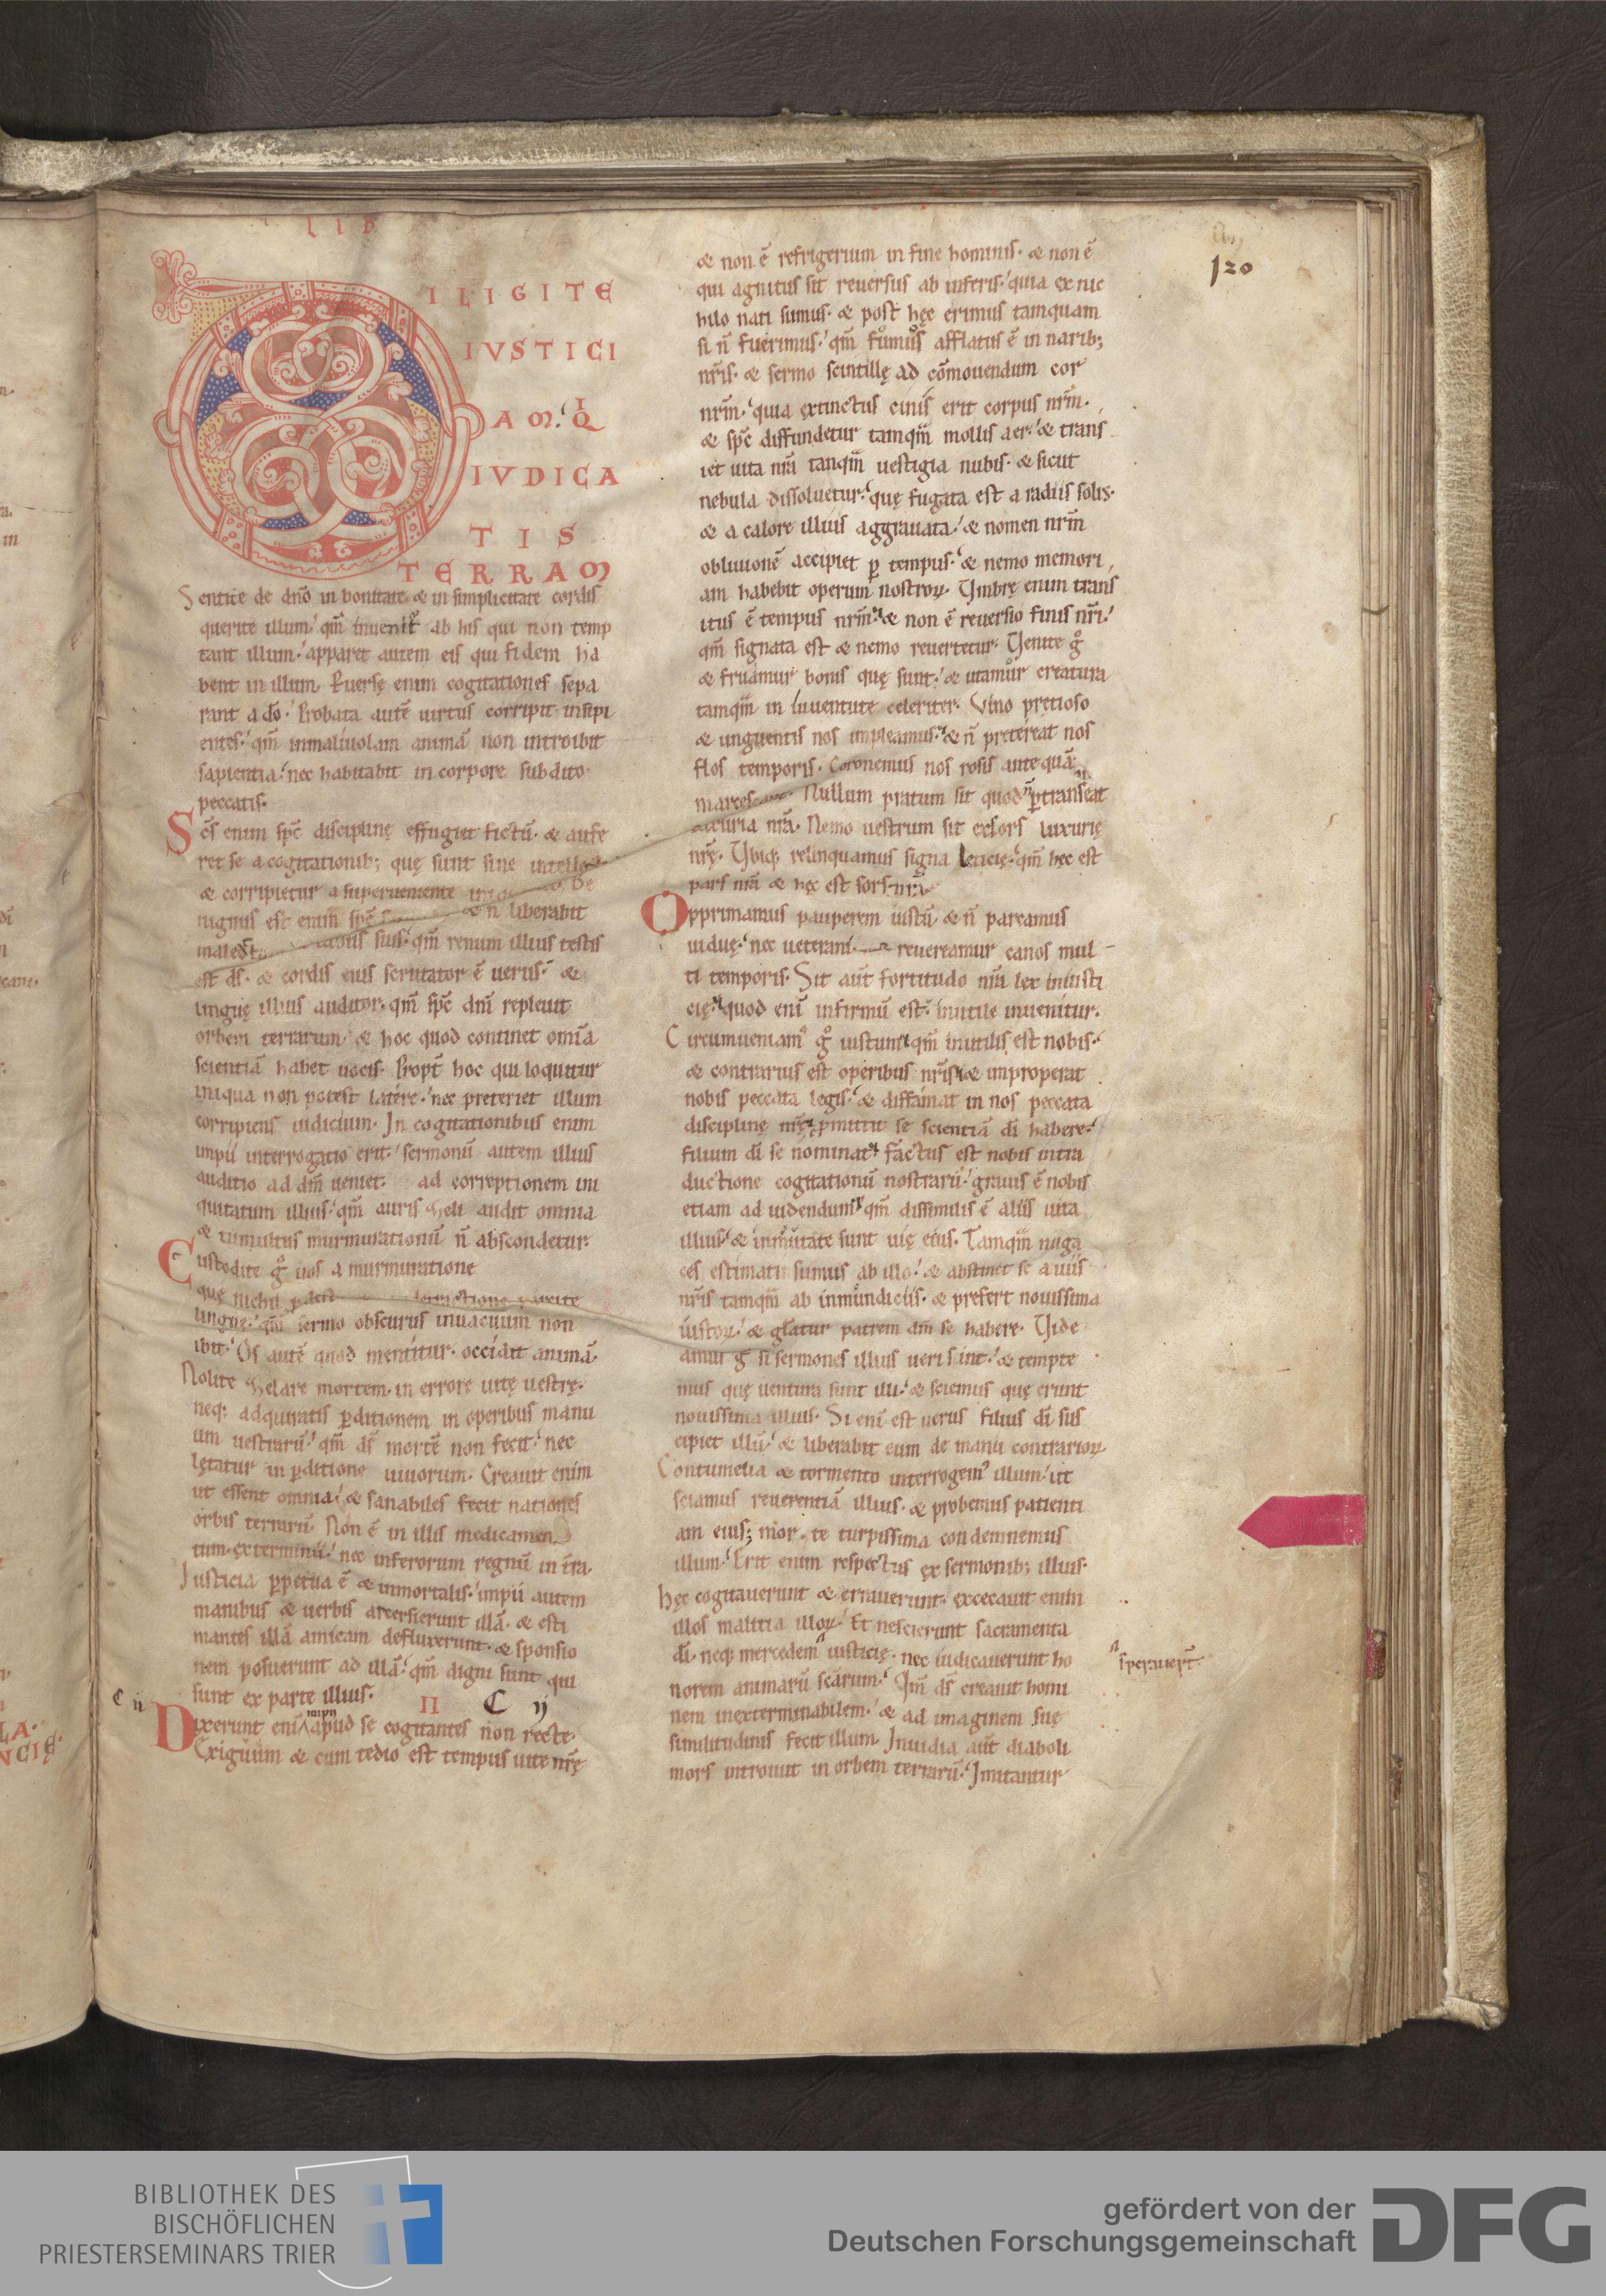 LIB
DILIGITE
IVSTICI
AM.' QI
IVDICA
TIS
TERRAM
Sentite de dn̄o in bonitate. & in simplicitate cordis
querite illum.' qm̄ inuenit᷑ ab his qui non temp
tant illum.' apparet autem eis qui fidem ha
bent in illum. Peruersę enim cogitationes sepa
rant a do̅. Probata autē uirtus corripit insipi
entes.' qm̄ in maliuolam animā non introibit
sapientia.' nec habitabit in corpore subdito
peccatis.
Sc̄s enim sp̄c disciplinę effugiet fictū. & aufe
ret se a cogitationib; quę sunt sine
& corripietur a superueniente Be
nignus est enim sp̄c & n̄ liberabit
maled labiis suis.' qm̄ renum illius testis
est ds̄. & cordis eius scrutator ē uerus. &
linguę illius auditor. qm̄ sp̄c dn̄i repleuit
orbem terrarum.' & hoc quod continet omīa
scientiā habet uocis. Propt̄ hoc qui loquitur
iniqua non potest latere.' nec preteriet illum
corripiens iudicium. In cogitationibus enim
impii interrogatio erit.' sermonū autem illius
auditio ad dm̄ ueniet. ad correptionem ini
quitatum illius.' qm̄ auris zeli audit omnia
& tumultus murmurationū n̄ abscondetur.
Custodite gͦ uos a murmuratione
que nichil p̄dest parcite
linguę.' qm̄ sermo obscurus in uacuum non
ibit.' Os autē quod mentitur. occidit animā.
Nolite zelare mortem. in errore uitę uestrę.
neq; adquiratis p̱ditionem in operibus manu
um uestrarū.' qm̄ ds̄ mortē non fecit.' nec
lętatur in p̱ditione uiuorum. Creauit enim
ut essent omnia.' & sanabiles fecit nationes
orbis terrarū. Non ē in illis medicamen
tum exterminii.' nec inferorum regnū in t̄ra.
Iusticia p̱petua ē & inmortalis.' impii autem
manibus & uerbis arcersierunt illā. & esti
mantes illā amicam defluxerunt. & sponsio
nem posuerunt ad illā.' qm̄ digni sunt qui
sunt ex parte illius. II C ij
C ij
Dixerunt enī impii apud se cogitantes non recte.
Exiguum & cum tedio est tempus uite nr̄ę
& non ē refrigerium in fine hominis. & non ē
qui agnitus sit reuersus ab inferis.' quia ex nic
hilo nati sumus. & post hęc erimus tamquam
si n̄ fuerimus.' qm̄ fumus afflatus ē in narib;
nr̄is. & sermo scintillę ad cōmouendum cor
nr̄m.' quia extinctus cinis erit corpus nr̄m.
& sp̄c diffundetur tamqm̄ mollis aer.' & trans
iet uita nr̄a tanqm̄ uestigia nubis. & sicut
nebula dissoluetur.' quę fugata est a radiis solis.
& a calore illius aggrauata.' & nomen nr̄m
obliuionē accipiet p̱ tempus.' & nemo memori
am habebit operum nostroꝝ. Vmbrę enim trans
itus ē tempus nr̄m.' & non ē reuersio finis nr̄i.'
qm̄ signata est & nemo reuertetur. Venite gͦ
& fruamur bonis quę sunt.' & utamur creatura
tamqm̄ in iuuentute celeriter. Vino prętioso
& unguentis nos impleamus.' & n̄ pretereat nos
flos temporis. Coronemus nos rosis ante quā
marces Nullum pratum sit quod n̄ p̱transeat
luxuria nr̄a. Nemo uestrum sit exsors luxurię
nr̄ę. Vbiq; relinquamus signa leticię.' qm̄ hęc est
pars nr̄a & hęc est sors nr̄a.
Opprimamus pauperem iustū. & n̄ parcamus
uiduę.' nec ueterani reuereamur canos mul
ti temporis. Sit aut̄ fortitudo nr̄a lex iniusti
cię.' quod enī infirmū est.' inutile inuenitur.
Circumueniam᷒ gͦ iustum.' qm̄ inutilis est nobis.'
& contrarius est operibus nr̄is.' & improperat
nobis peccata legis.' & diffamat in nos peccata
disciplinę nr̄ę. p̱mittit se scientiā di̅ habere.'
filium di̅ se nominat.' factus est nobis in tra
ductione cogitationū nostrarū.' grauis ē nobis
etiam ad uidendum.' qm̄ dissimilis ē aliis uita
illius.' & inmutate sunt uię eius. Tamqm̄ nuga
ces estimati sumus ab illo.' & abstinet se a uiis
nr̄is tamqm̄ ab inmundiciis. & prefert nouissima
iustoꝝ.' & gl̄atur patrem dm̄ se habere. Vide
amus gͦ si sermones illius ueri sint.' & tempte
mus quę uentura sunt illi.' & sciemus quę erunt
nouissima illius. Si enī est uerus filius di̅ sus
cipiet illū.' & liberabit eum de manu contrarioꝝ
Contumelia & tormento interrogem᷒ illum.' ut
sciamus reuerentiā illius. & probemus patienti
am eius; morte turpissima condemnemus
illum.' Erit enim respectus ex sermonib; illius.
Hęc cogitauerunt & errauerunt. excecauit enim
illos malitia illoꝝ.' Et nescierunt sacramenta
di̅. neq; mercedem iusticię. nec iudicauerunt ho
norem animarū scārum.' Qm̄ ds̄ creauit homi
nem inexterminabilem.' & ad imaginem suę
similitudinis fecit illum. Inuidia aut̄ diaboli
mors introiuit in orbem terrarū.' Imitantur
120
sperauer̄t
BIBLIOTHEK DES
BISCHÖFLICHEN
PRIESTERSEMINARS TRIER
gefördert von der
Deutschen Forschungsgemeinschaft
DFG